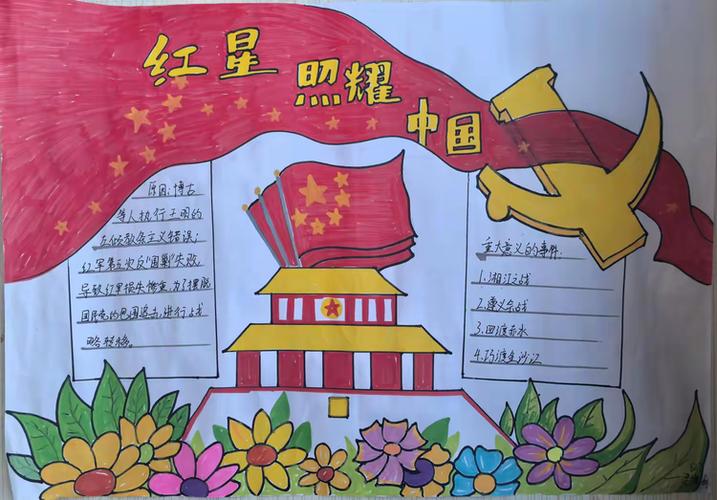 红星 照耀 中国
原因:博古
等人执行王明的
左倾教条主义错误;
红军第五次反"围剿"失败,
导致红军损失惨重,为了摆脱
国民党的包围追击,进行战
略转移。
重大意义的事件:
1.湘江之战
2.遵义会战
3.四渡赤水
4.巧渡金沙江